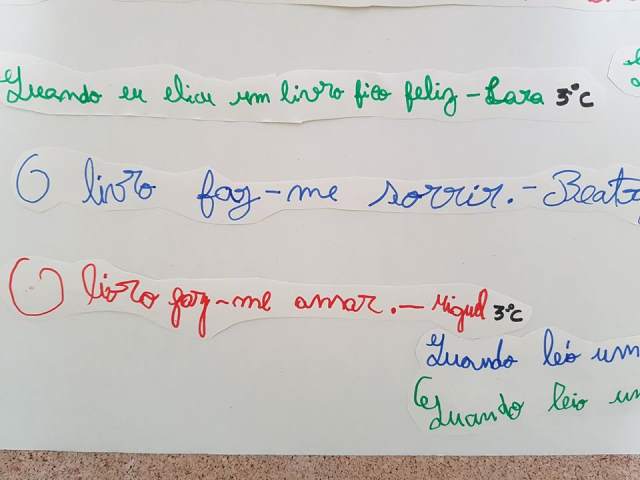 Quando eu elicu um livro fico feliz - Lara 3ºC
O livro faz-me sorrir. - Beatr
O livro faz-me amar. - Miguel 3ºC
Quando leo um
Quando leio um